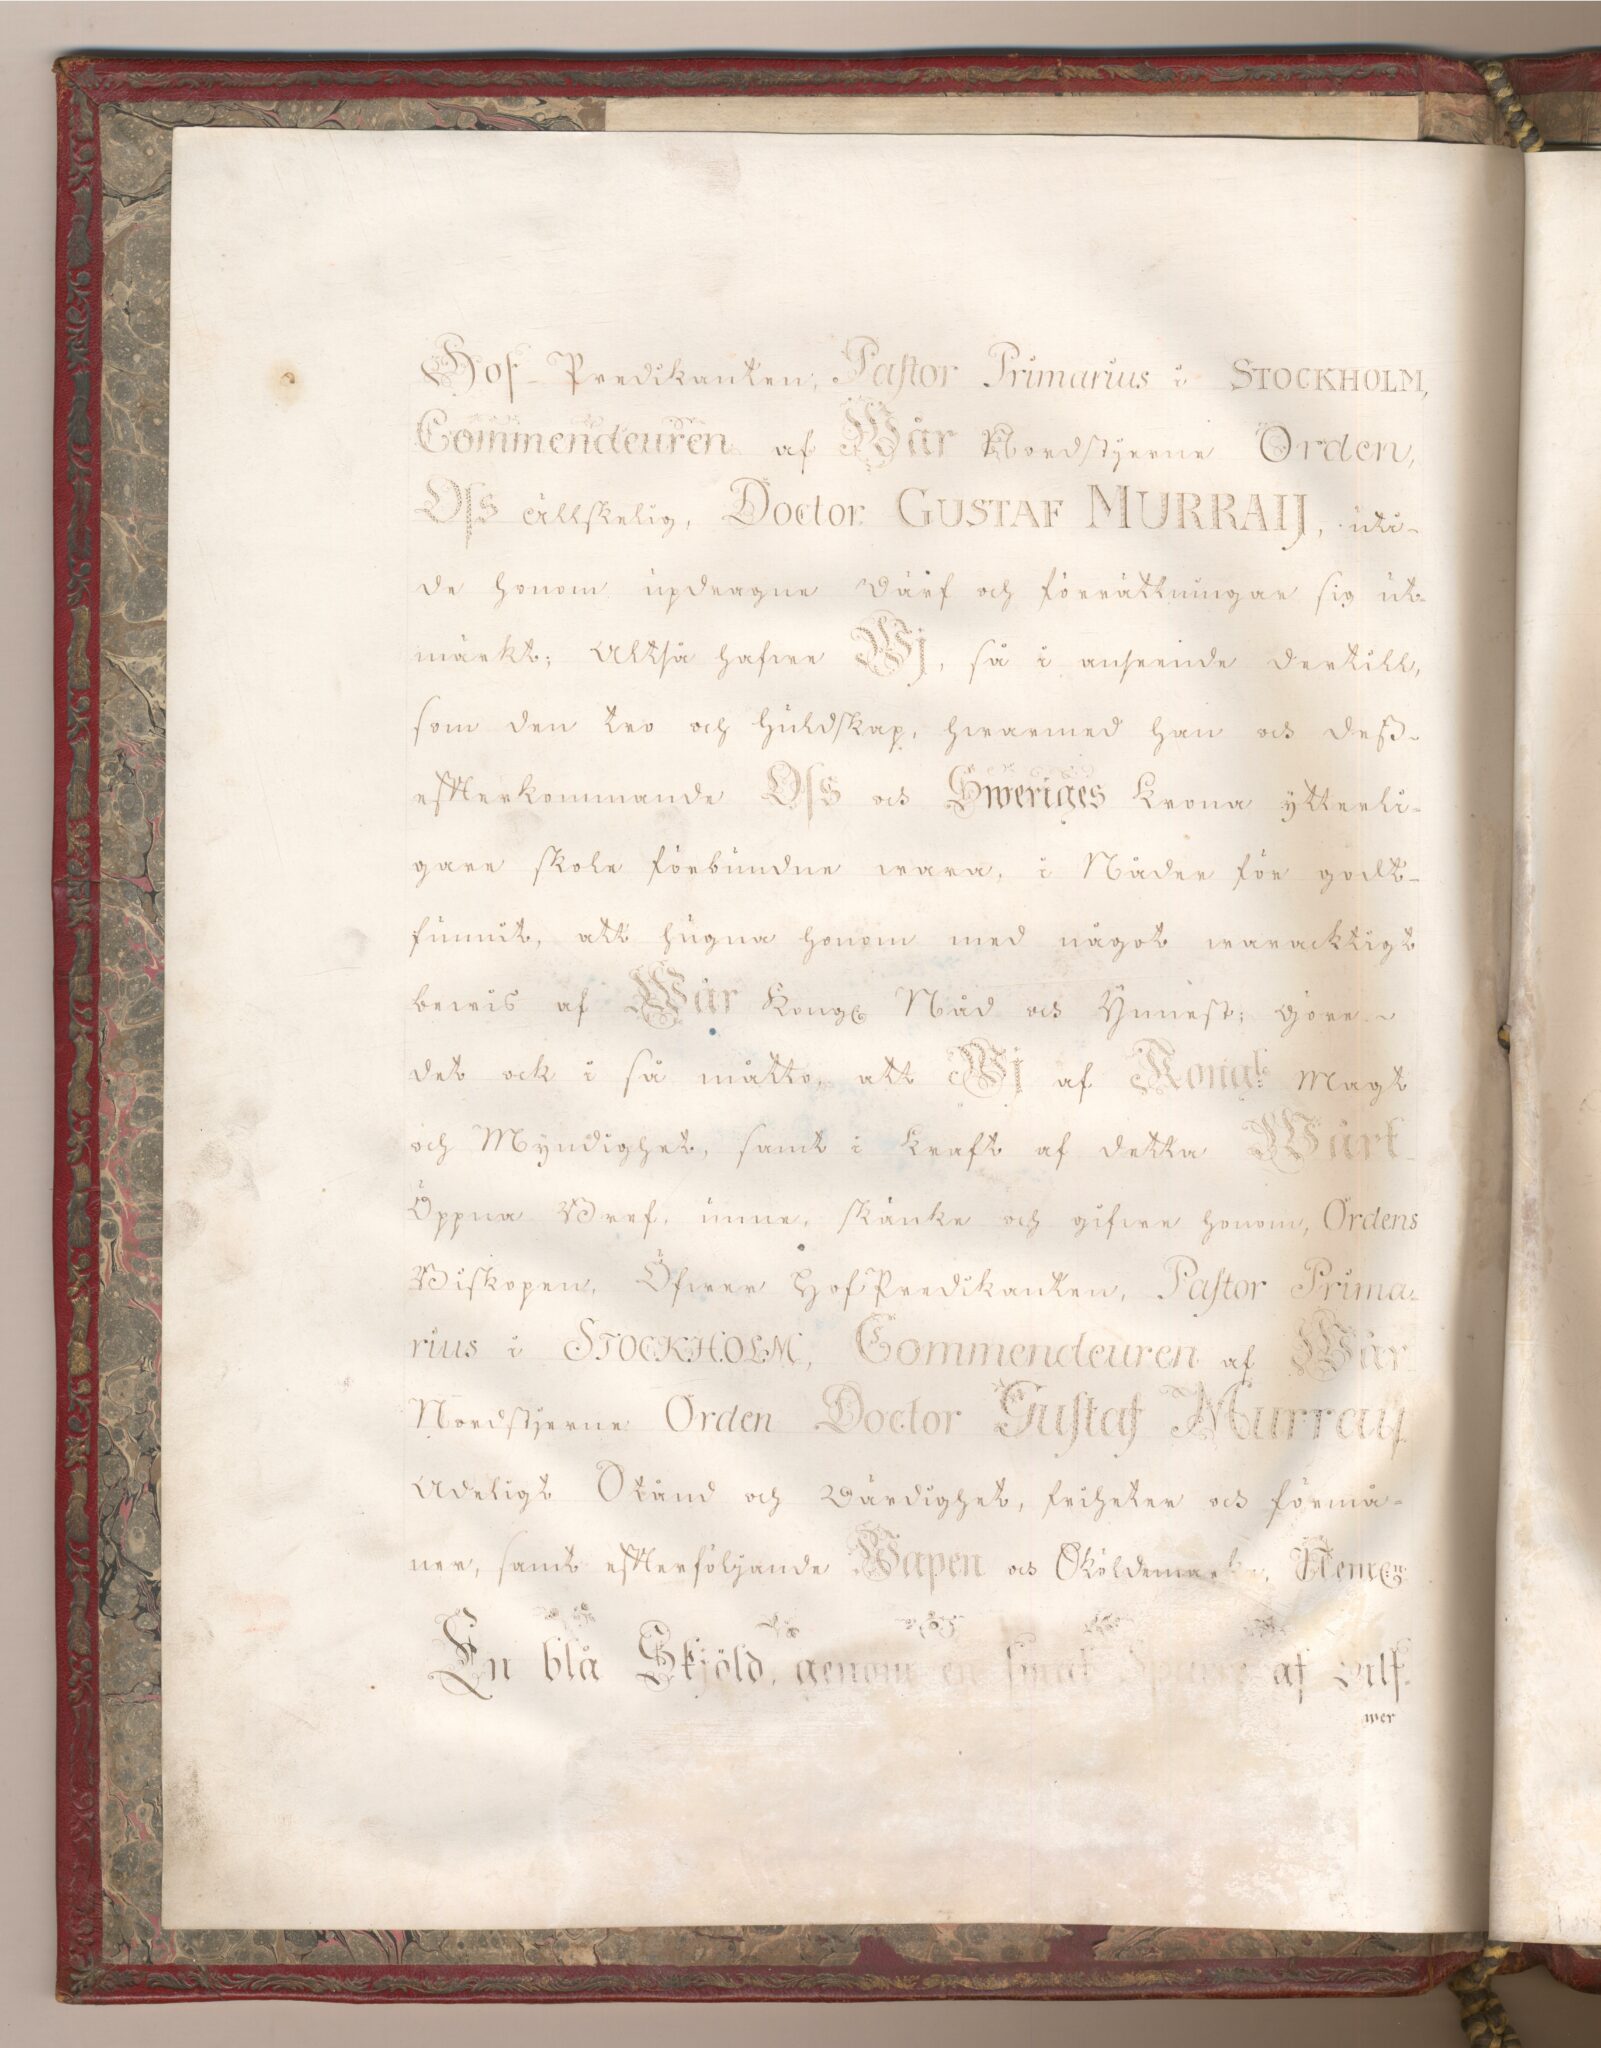 Hof-Predikanten, Pastor Primarius i STOCKHOLM,
Commendeuren af Wår Nordstjerne Orden,
Oss älskelig, Doctor GUSTAF MURRAIJ, uti-
de honom updragne Värf och förrättningar sig ut-
märkt; Altså hafwe Wj, så i anseende dertill,
som den tro och huldskap, hwarmed han och dess-
efterkommande Oss och Sweriges Krona ytterli-
gare skole förbundne wara, i Nåder för godt-
funnit, att hugna honom med något waracktigt
bewis af Wår Kongl Nåd och Ynnest; Göre-
det ock i så måtto, att Wj af Kongl: Magt
och Myndighet, samt i kraft af detta Wårt
Öppna Bref, unne, skänke och gifwe honom, Ordens
Biskopen, Öfwer HofPredikanten, Pastor Prima-
rius i STOCKHOLM, Commendeuren af Wår
Nordstjerne Orden Doctor Gustaf Murraij
Adeligt Stånd och Värdighet, friheter och förmå-
ner, samt efterföljande Wapen och Sköldemarke,
En blå Skjöld, genom en smal af Silf-
wer